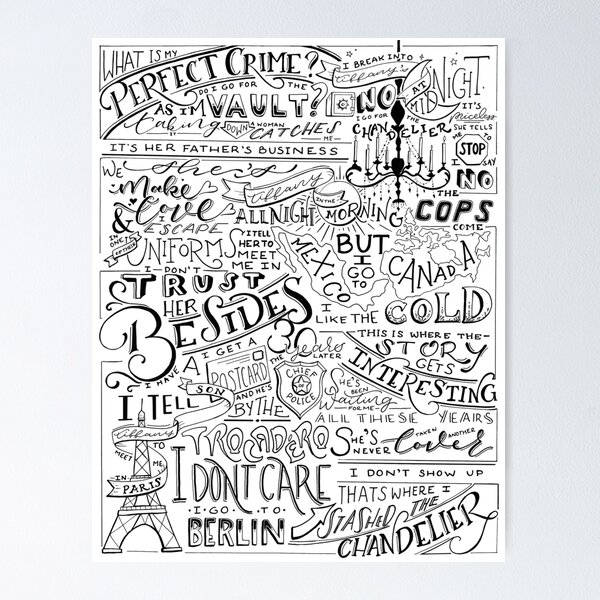 WHAT IS MY
PERFECT CRIME?
I BREAK INTO
Tiffany's
AT
MIDNIGHT.
DO I GO FOR THE
VAULT?
NO
I GO FOR
THE
CHANDELIER
IT'S
priceless
AS I'M
taking
DOWN
A WOMAN
CATCHES
ME
SHE TELLS
ME TO
STOP
IT'S HER FATHER'S BUSINESS
She's
Tiffany
I SAY
NO
WE
make
love
ALL NIGHT
IN THE
MORNING
THE
COPS
COME
&
I
ESCAPE
IN ONE
OF THEIR
UNIFORMS
I TELL
HER TO
MEET
ME IN
MEXICO
BUT
I
GO
TO
CANADA
I DON'T
TRUST
HER
BESIDES
I
LIKE THE
COLD
30
years
LATER
I GET A
POSTCARD
THIS IS WHERE THE
STORY
GETS
INTERESTING
I HAVE A
SON
AND HE'S
THE
CHIEF
OF
POLICE
I TELL
Tiffany
TO
MEET
ME
IN
PARIS
BY THE
TROCADERO
SHE'S
BEEN
Waiting
FOR ME
ALL THESE YEARS
SHE'S
NEVER
TAKEN ANOTHER
lover
I DON'T CARE
I DON'T SHOW UP
I GO TO
BERLIN
THATS WHERE I
STASHED
THE
CHANDELIER